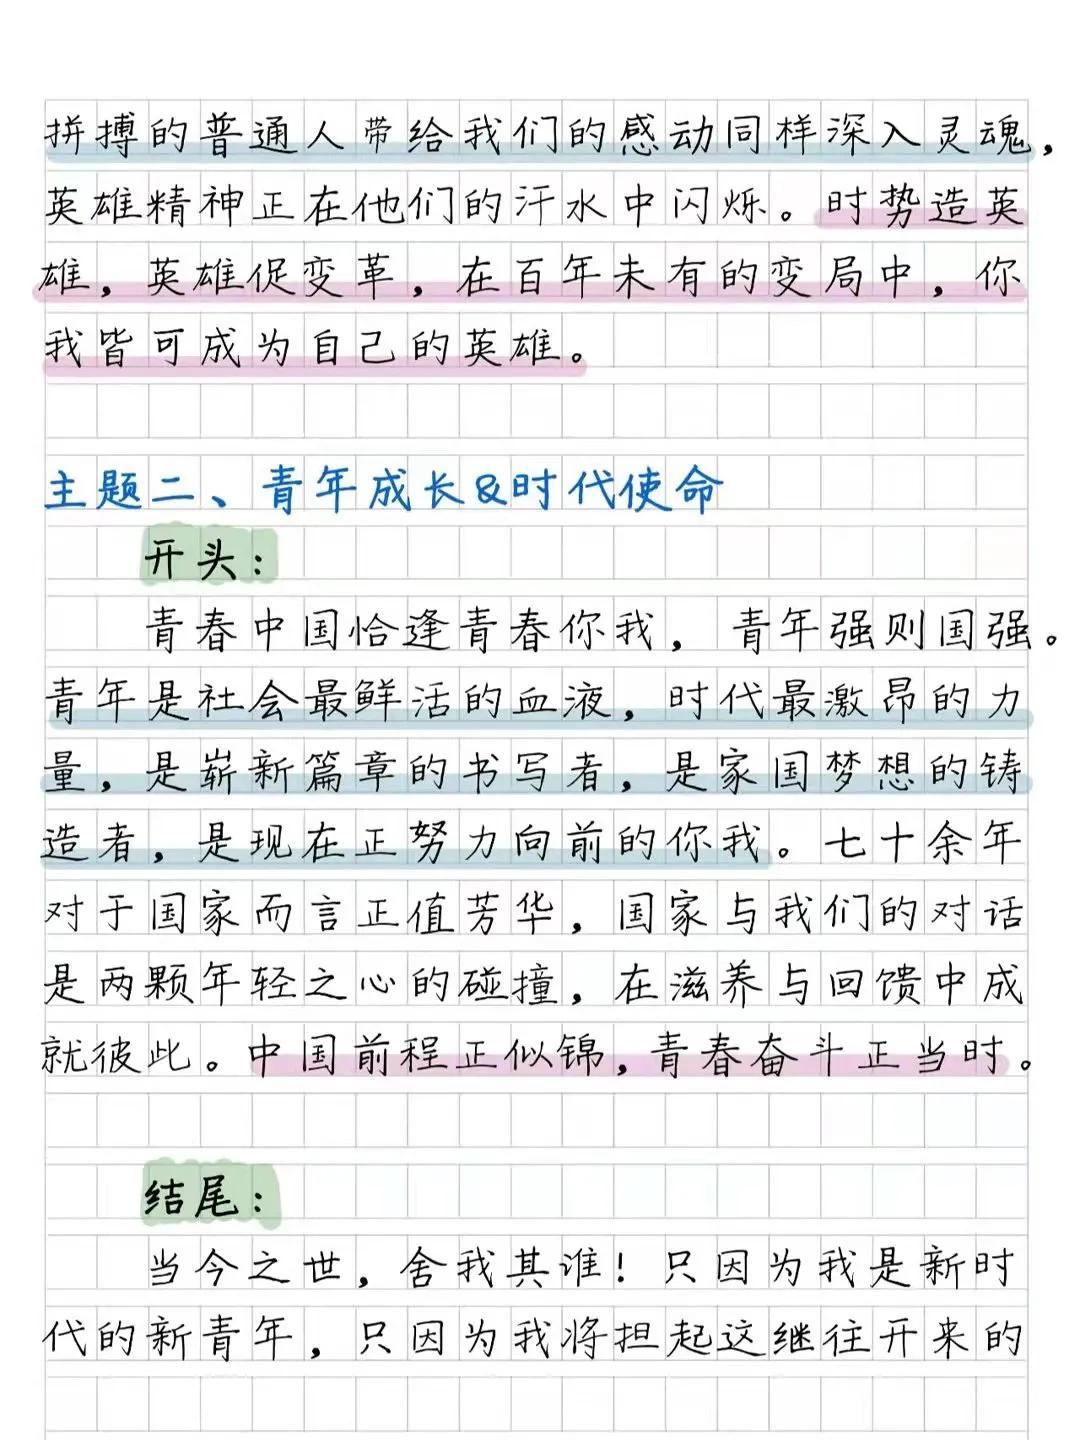 拼搏的普通人带给我们的感动同样深入灵魂，
英雄精神正在他们的汗水中闪烁。时势造英
雄，英雄促变革，在百年未有的变局中，你
我皆可成为自己的英雄。
主题二、青年成长&时代使命
开头：
青春中国恰逢青春你我，青年强则国强。
青年是社会最鲜活的血液，时代最激昂的力
量，是崭新篇章的书写者，是家国梦想的铸
造者，是现在正努力向前的你我。七十余年
对于国家而言正值芳华，国家与我们的对话
是两颗年轻之心的碰撞，在滋养与回馈中成
就彼此。中国前程正似锦，青春奋斗正当时。
结尾：
当今之世，舍我其谁！只因为我是新时
代的新青年，只因为我将担起这继往开来的